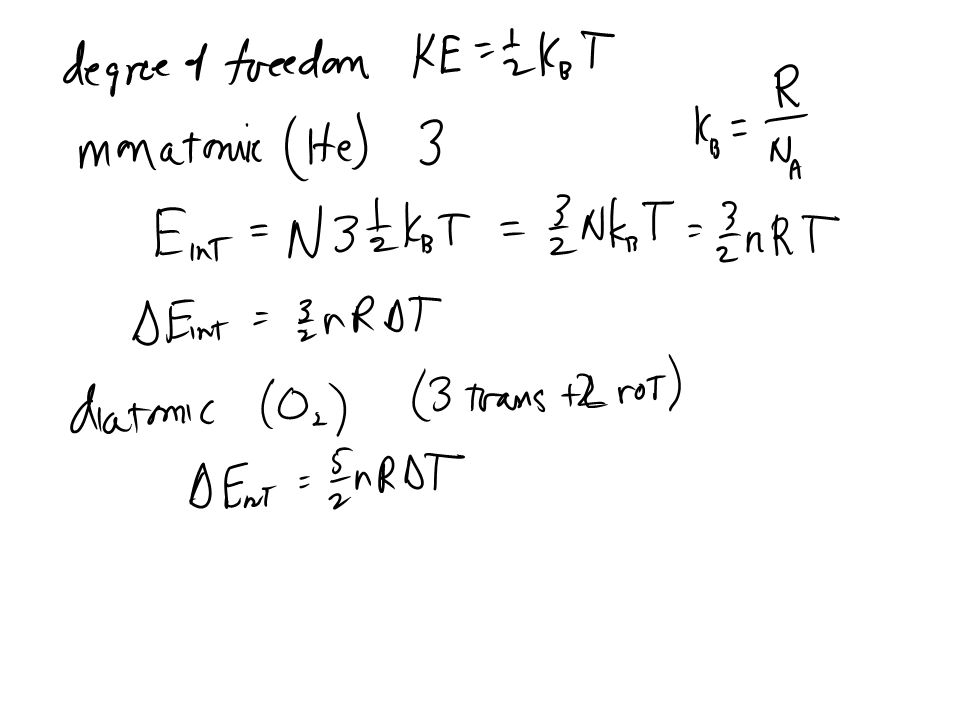 degree of freedom KE = 1/2 k_B T
k_B = R/N_A
monatomic (He) 3
E_int = N 3 1/2 k_B T = 3/2 N k_B T = 3/2 n R T
ΔE_int = 3/2 n R ΔT
diatomic (O₂) (3 trans + 2 rot)
ΔE_int = 5/2 n R ΔT